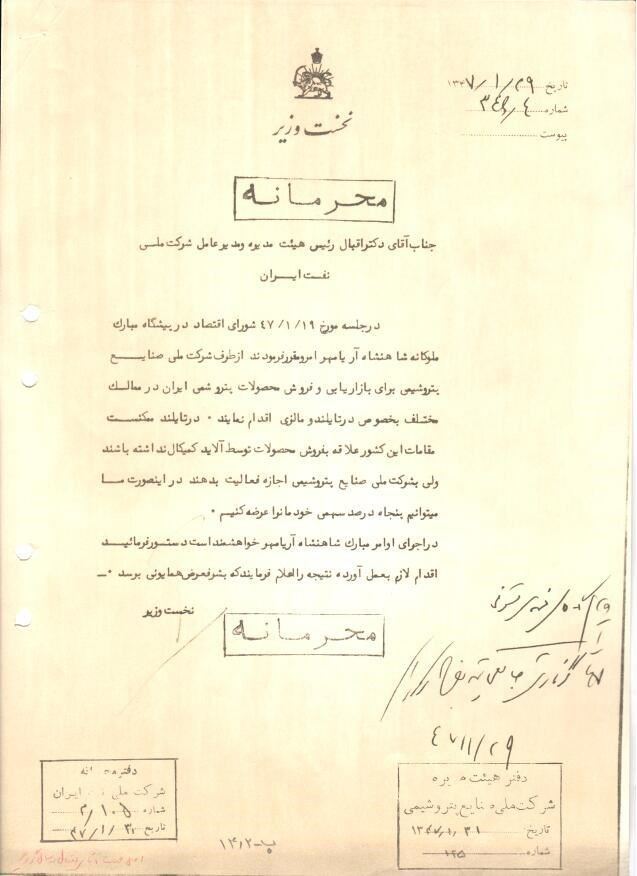 نخست وزیر
تاریخ ۱۳۴۷/۱/۲۹
شماره ۳۴۸/۴
پیوست
محرمانه
جناب آقای دکتر اقبال رئیس هیئت مدیره و مدیر عامل شرکت ملی
نفت ایران
در جلسه مورخ ۴۷/۱/۱۹ شورای اقتصاد در پیشگاه مبارک
ملوکانه شاهنشاه آریامهر امر و مقرر فرمودند از طرف شرکت ملی صنایع
پتروشیمی برای بازاریابی و فروش محصولات پتروشیمی ایران در ممالک
مختلف بخصوص در تایلند و مالزی اقدام نمایند ۰ در تایلند ممکنست
مقامات این کشور علاقه بفروش محصولات توسط آلاید کمیکال نداشته باشند
ولی بشرکت ملی صنایع پتروشیمی اجازه فعالیت بدهند در اینصورت ما
میتوانیم پنجاه درصد سهمی خودمانرا عرضه کنیم ۰
در اجرای اوامر مبارک شاهنشاه آریامهر خواهشمند است دستور فرمائید
اقدام لازم بعمل آورده نتیجه را اعلام فرمایند که بشرفعرض همایونی برسد ۰ــ
نخست وزیر
محرمانه
۴۷/۱/۲۹
دفتر هیئت مدیره
شرکت ملی صنایع پتروشیمی
تاریخ ۱۳۴۷/۱/۳۱
شماره ۱۲۵
دفتر محرمانه
شرکت ملی نفت ایران
شماره ۲/۱۰۵
تاریخ ۴۷/۱/۳۰
ب-۱۴/۲